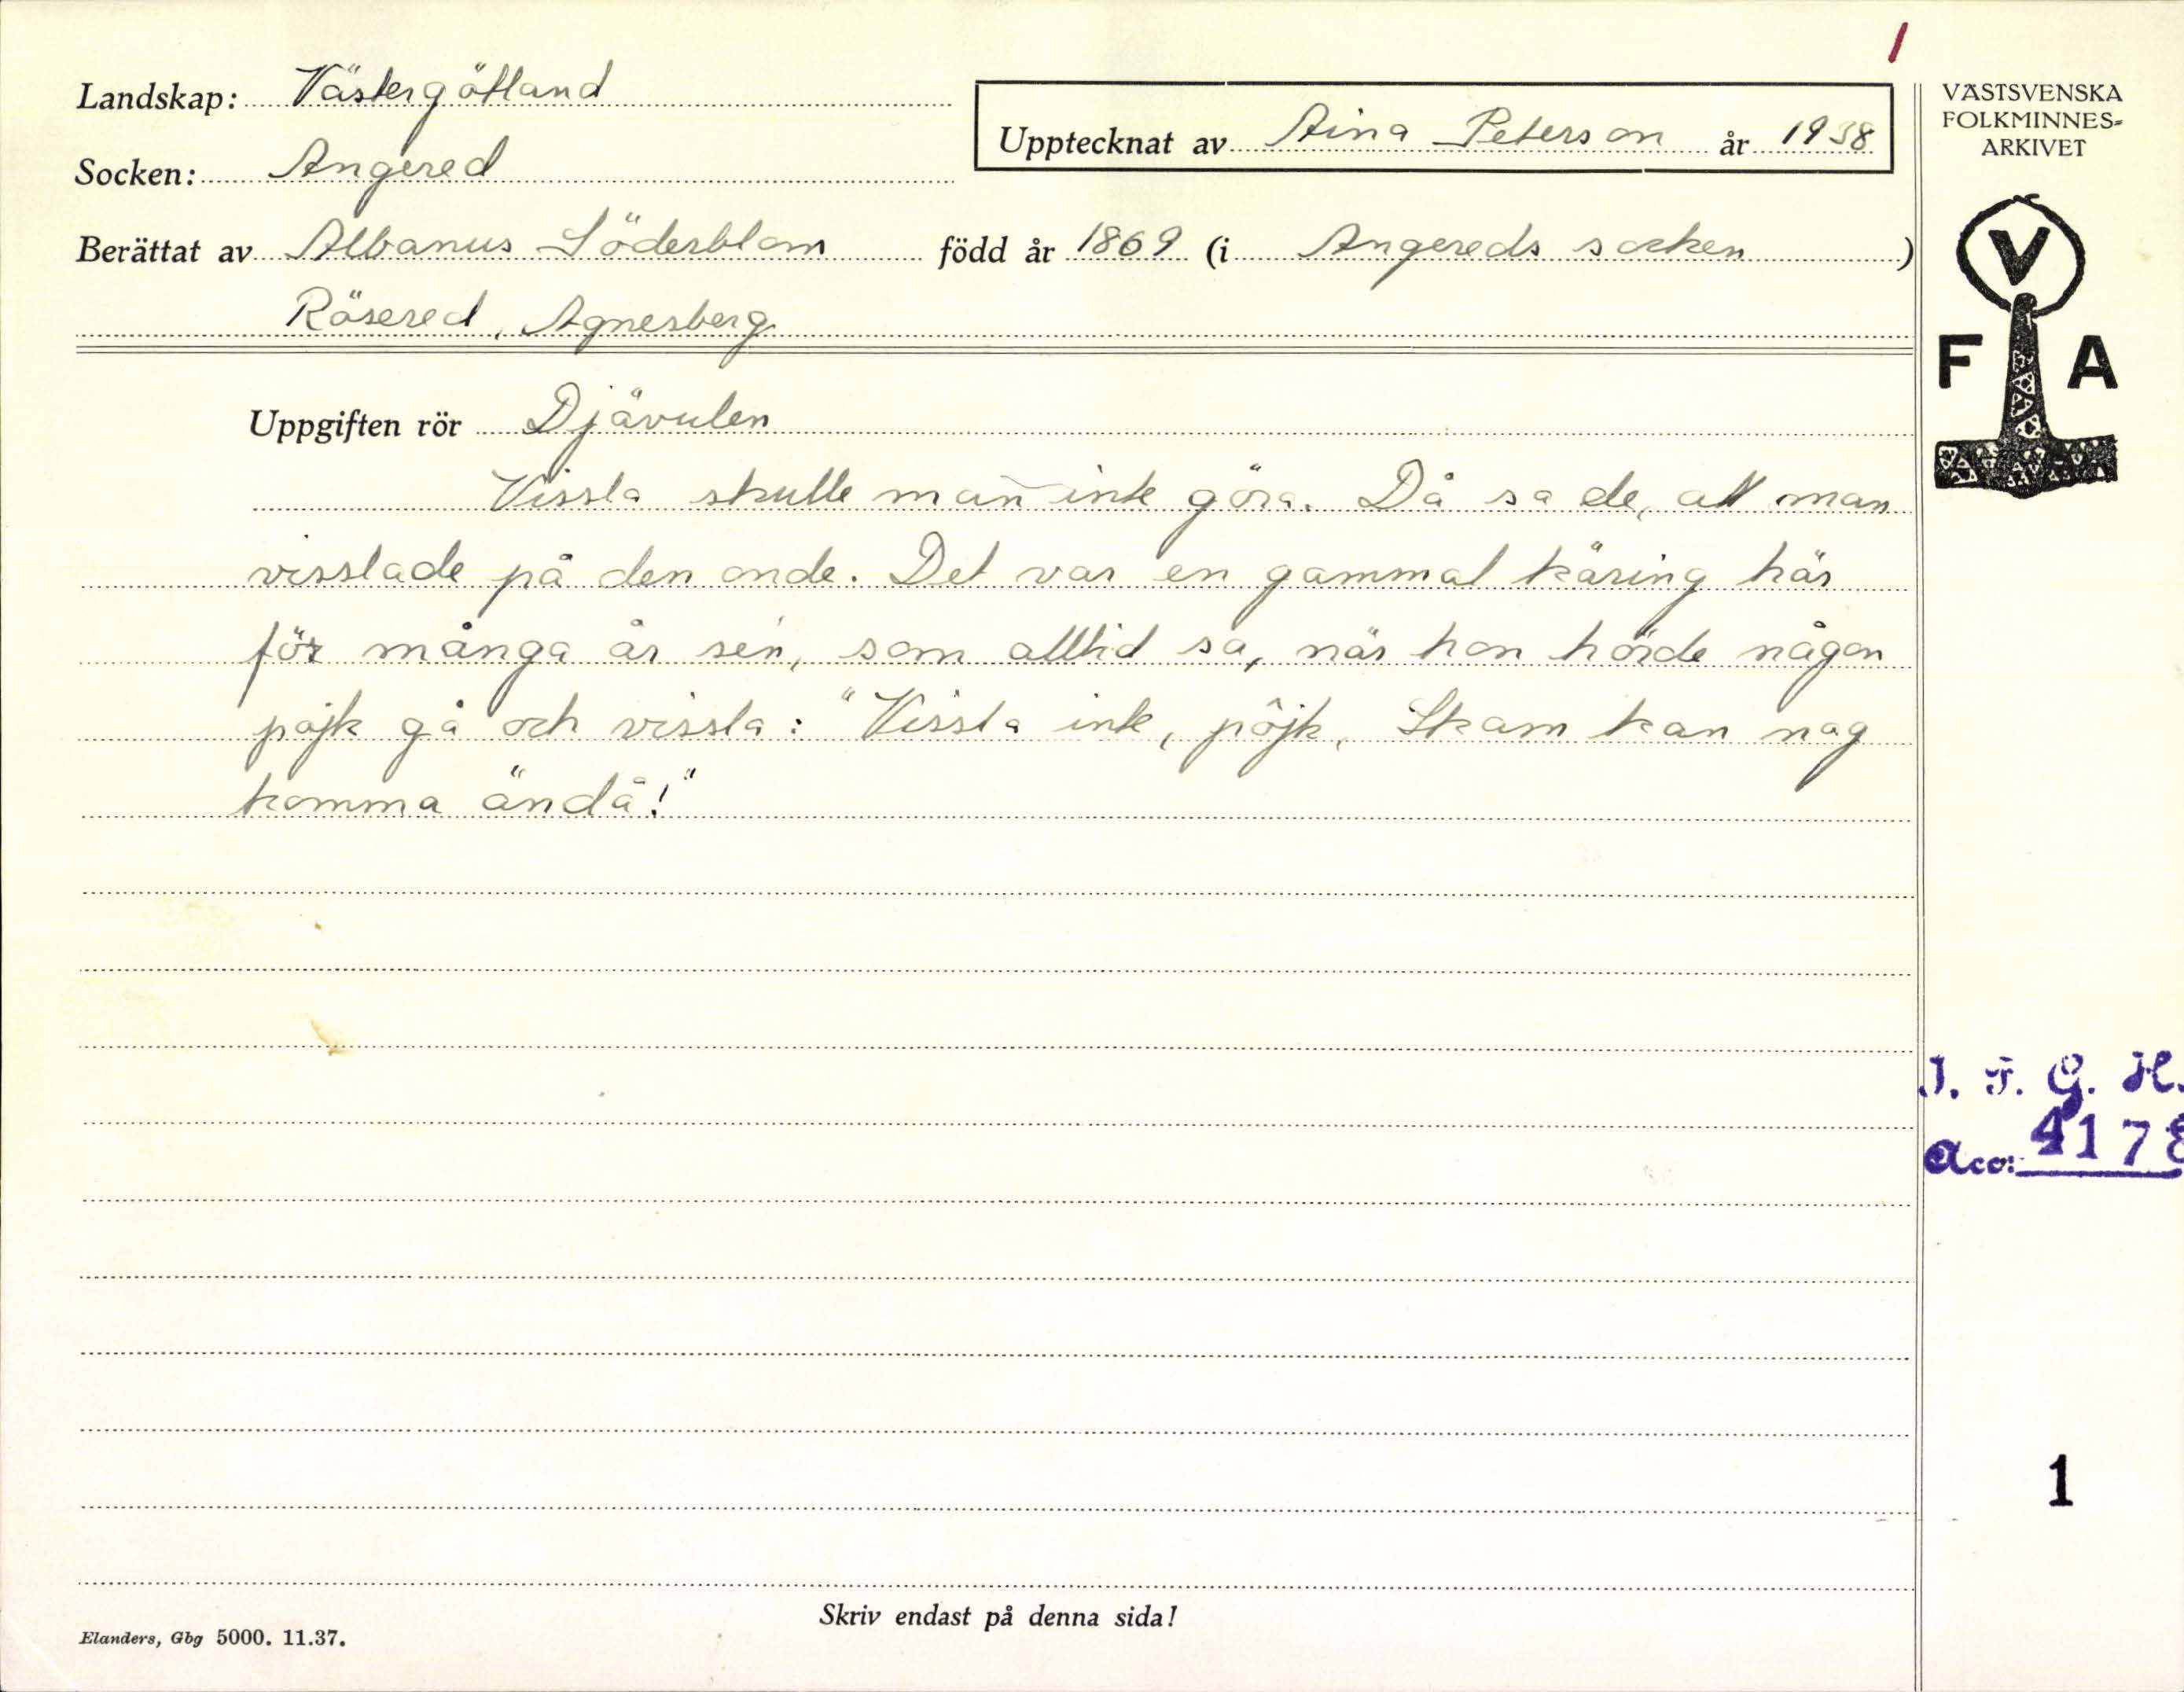 1
Landskap: Västergötland
Upptecknat av Aina Peterson år 1938
Socken: Angered
Berättat av Albanus Söderblom född år 1869 (i Angereds socken)
Rösered, Agnesberg
Uppgiften rör Djävulen
Vissla skulle man inte göra. Då sa de, att man
visslade på den onde. Det var en gammal käring här
för många år sen, som alltid sa, när hon hörde någon
pojk gå och vissla: "Vissla inte, pöjk, Skam kan nog
komma ändå!"
Skriv endast på denna sida!
Elanders, Gbg 5000. 11.37.
VÄSTSVENSKA
FOLKMINNES-
ARKIVET
V
F A
I. F. G. H.
Acc: 4178
1